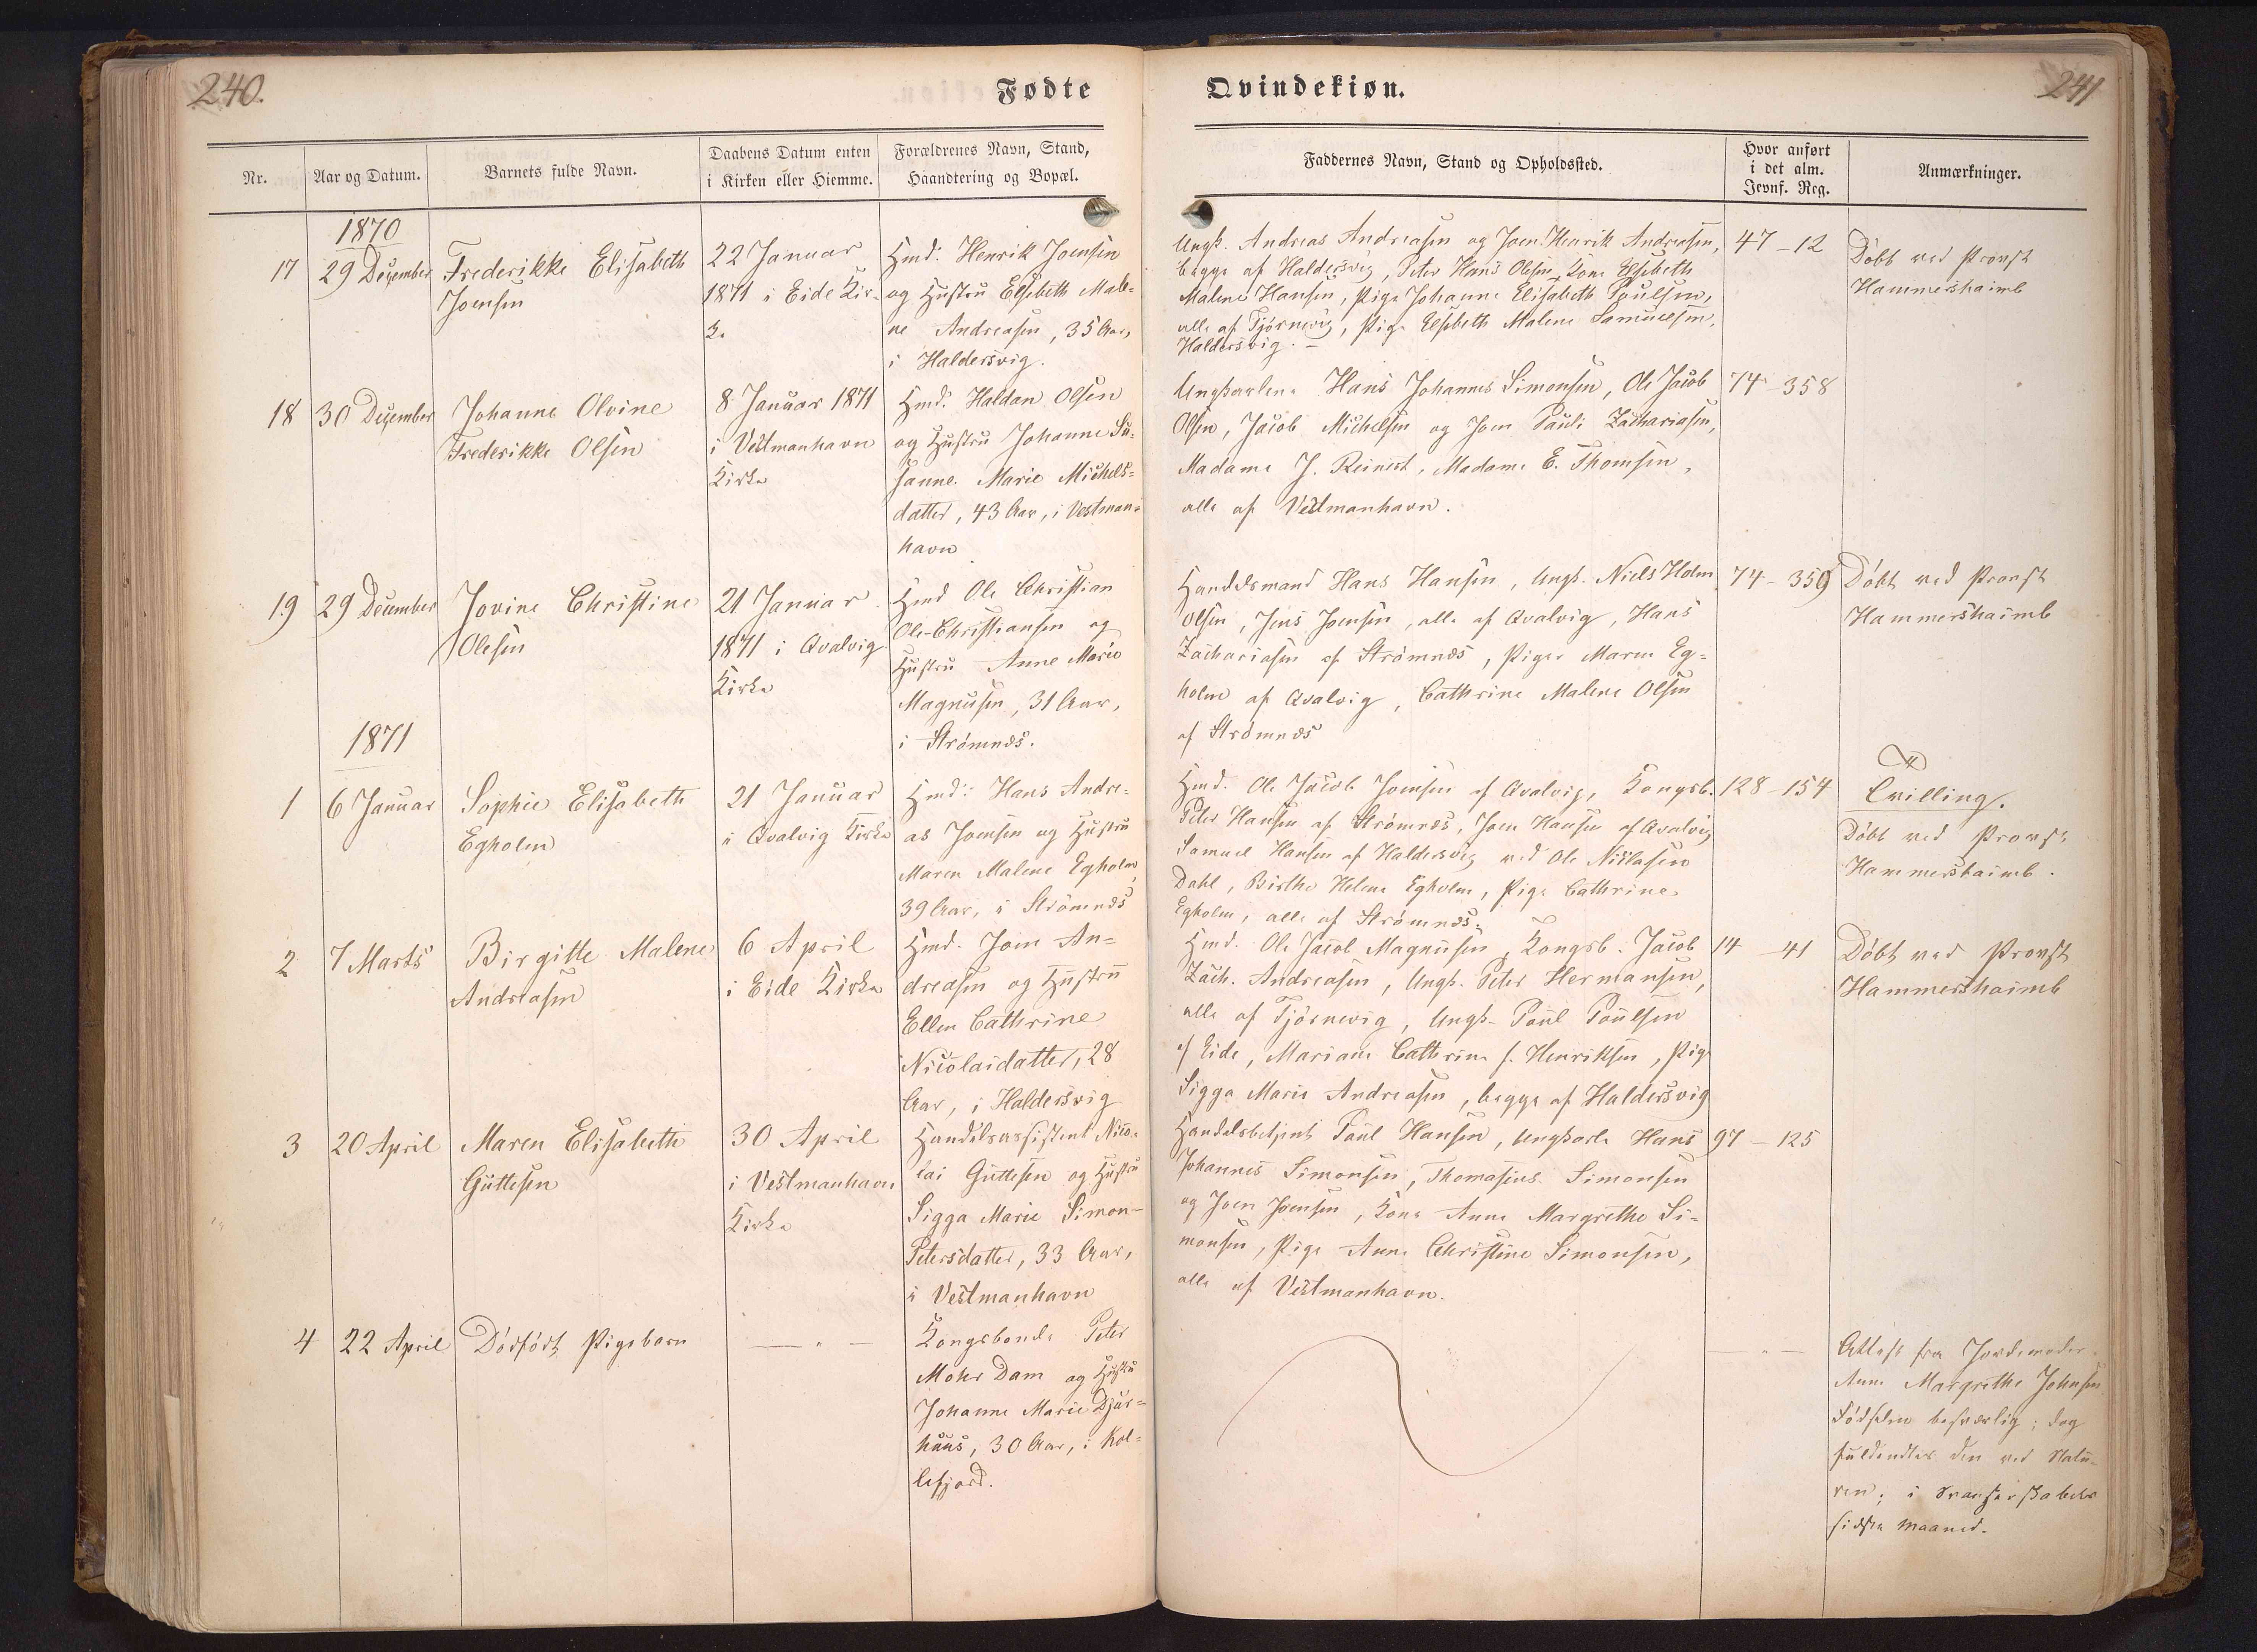 240.
Fødte
Nr.
Aar og Datum.
Barnets fulde Navn.
Daabens Datum enten
i Kirken eller Hiemme.
Forældrenes Navn, Stand,
Haandtering og Bopæl.
1870
17
29 December
Frederikke Elisabeth
Joensen
22 Januar
1871 i Eide Kir-
ke
Hmd. Henrik Joensen
og Hustru Elsebeth Male-
ne Andreasen, 35 Aar,
i Haldersvig.
18
30 December
Johanne Olvine
Frederikke Olsen
8 Januar 1871
i Vestmanhavn
Kirke
Hmd. Haldan Olsen
og Hustru Johanne Su-
sanne Marie Michels-
datter, 43 Aar, i Vestman-
havn
19
29 December
Jovine Christine
Olesen
21 Januar
1871 i Qvalvig
Kirke
Hmd Ole Christian
Ole-Christiansen og
Hustru Anne Marie
Magnusen, 31 Aar,
i Strømnæs.
1871
1
6 Januar
Sophie Elisabeth
Egholm
21 Januar
i Qvalvig Kirke
Hmd. Hans Andre-
as Joensen og Hustru
Maren Malene Egholm,
39 Aar, i Strømnæs
2
7 Marts
Birgitte Malene
Andreasen
6 April
i Eide Kirke
Hmd. Joen An-
dreasen og Hustru
Ellen Cathrine
Nicolaidatter, 28
Aar, i Haldersvig
3
20 April
Maren Elisabeth
Guttesen
30 April
i Vestmanhavn
Kirke
Handelsassistent Nico-
lai Guttesen og Hustru
Sigga Marie Simon-
Petersdatter, 33 Aar,
i Vestmanhavn
4
22 April
Dødfødt Pigebarn
— " —
Kongsbonde Peter
Mohr Dam og Hustru
Johanne Marie Djur-
huus, 30 Aar, i Kol-
lefjord.
Qvindekiøn.
241
Faddernes Navn, Stand og Opholdssted.
Hvor anført
i det alm.
Jevnf. Reg.
Anmærkninger.
Ungk. Andreas Andreasen og Joen Henrik Andreasen,
begge af Haldersvig, Peter Hans Olesen, Kone Elsebeth
Malene Hansen, Pige Johanne Elisabeth Poulsen,
alle af Tjørnevig, Pige Elsebeth Malene Samuelsen,
Haldersvig. —
47 - 12
Døbt ved Provst
Hammershaimb
Ungkarlene Hans Johannes Simonsen, Ole Jacob
Olsen, Jacob Michelsen og Joen Pauli Zachariasen,
Madame J. Reinert, Madame E. Thomsen,
alle af Vestmanhavn.
74 - 358
Handelsmand Hans Hansen, Ungk. Niels Holm
Olsen, Jens Joensen, alle af Qvalvig, Hans
Zachariasen af Strømnæs, Piger Maren Eg-
holm af Qvalvig, Cathrine Malene Olsen
af Strømnæs
74 - 359
Døbt ved Provst
Hammershaimb
Hmd. Ole Jacob Joensen af Qvalvig, Kongsb.
Peter Hansen af Strømnæs, Joen Hansen af Qvalvig
Samuel Hansen af Haldersvig ved Ole Niclasen
Dahl, Birthe Helene Egholm, Pige Cathrine
Egholm, alle af Strømnæs.
128 - 154
Tvilling.
Døbt ved Provst
Hammershaimb.
Hmd. Ole Jacob Magnusen, Kongsb. Jacob
Zach. Andreasen, Ungk. Peter Hermansen,
alle af Tjørnevig, Ungk. Poul Poulsen
af Eide, Mariane Cathrine f. Henriksen, Pige
Sigga Marie Andreasen, begge af Haldersvig
14 - 41
Døbt ved Provst
Hammershaimb
Handelsbetjent Poul Hansen, Ungkarle Hans
Johannes Simonsen, Thomasius Simonsen
og Joen Joensen, Kone Anne Margrethe Si-
monsen, Pige Anne Christine Simonsen,
alle af Vestmanhavn.
97 - 125
— " —
Attest fra Jordemoder
Anne Margrethe Johnsen
Fødselen besværlig; dog
fuldendtes den ved Natu-
ren; i Svangerskabets
sidste Maaned.